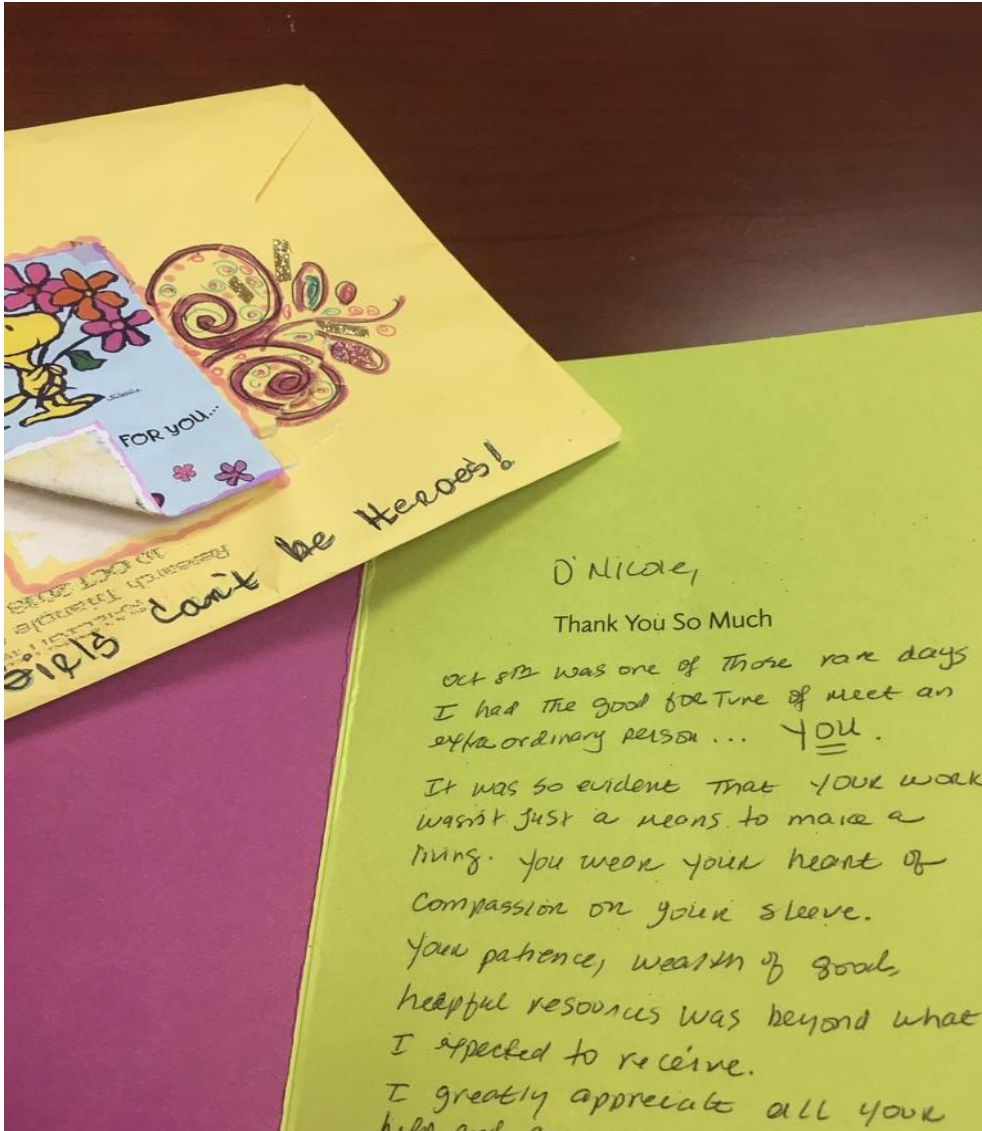 FOR YOU...
Girls can't be Heroes!
D'Nicole,
Thank You So Much
Oct 8th was one of those rare days
I had the good forTune of meet an
extraordinary person... YOU.
It was so evident that your work
wasn't just a means to make a
living. You wear your heart of
compassion on your sleeve.
Your patience, wealth of good,
helpful resources was beyond what
I expected to receive.
I greatly appreciate all your
help and